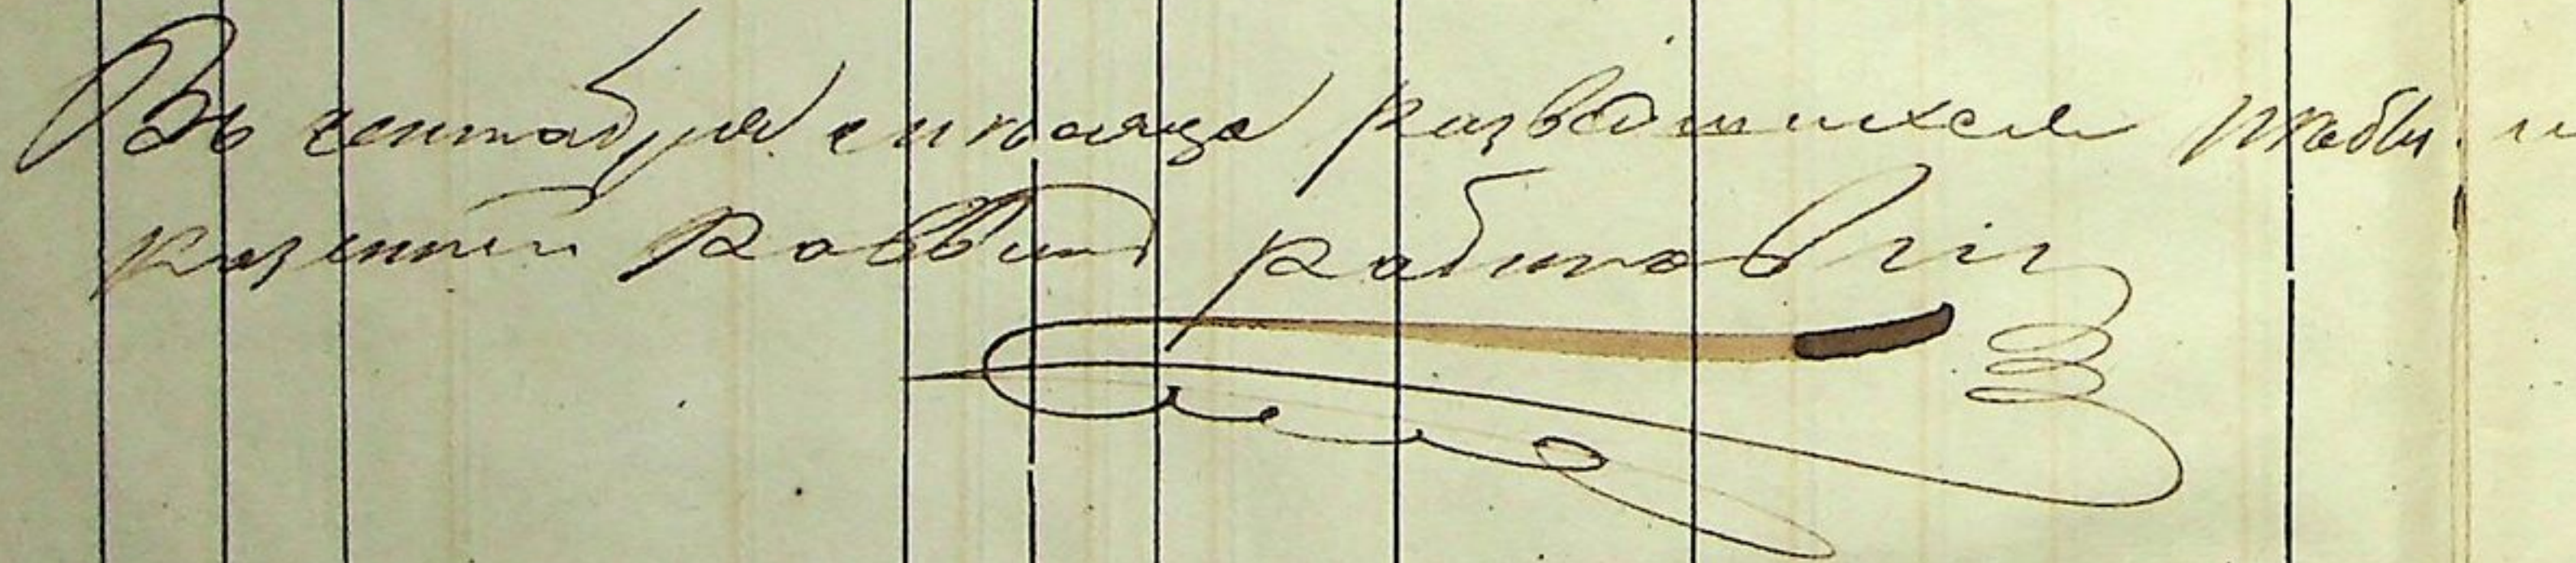 Въ сентябрѣ мѣсяцѣ разведшихся небы
Казенный Раввинъ Рабинович